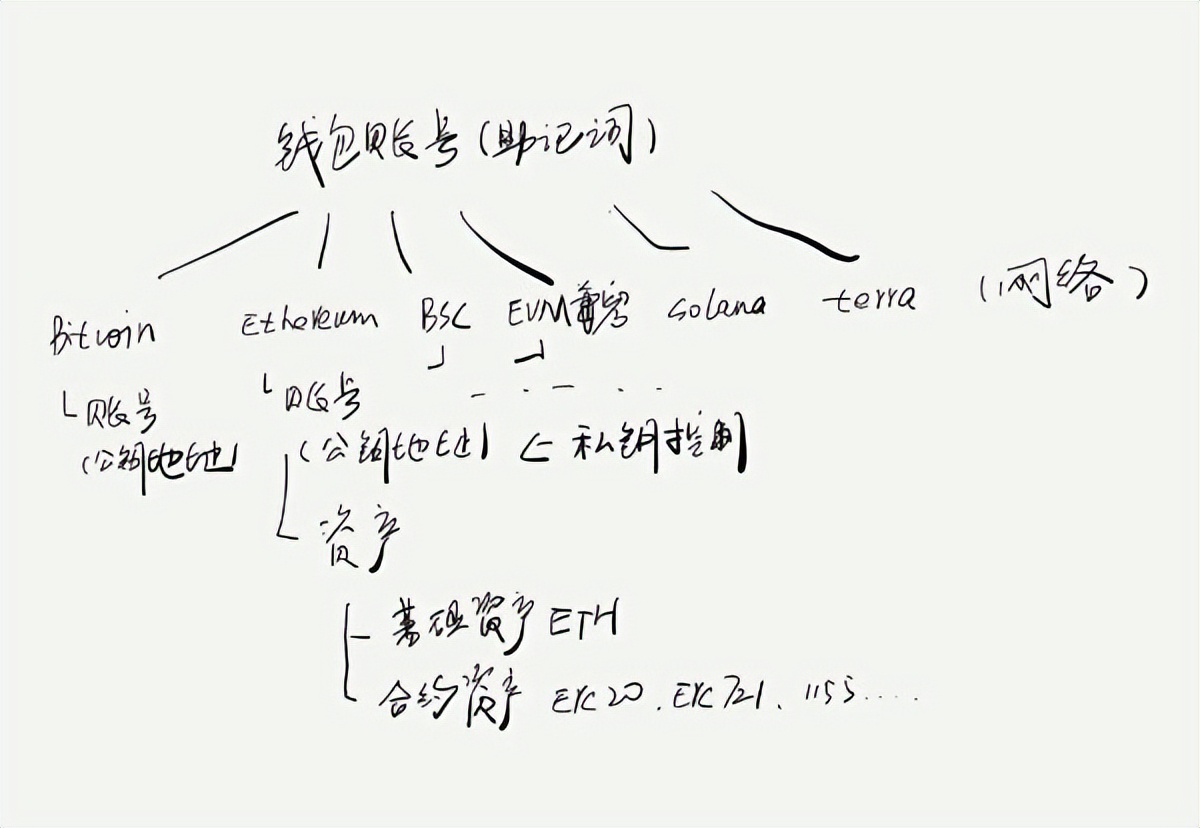 钱包账号(助记词)
Bitcoin Ethereum BSC EVM兼容 solana terra (网络)
账号 账号 - . - . .
(公钥地址) (公钥地址) ← 私钥控制
资产
基础资产 ETH
合约资产 ERC20. ERC721. 1155.....